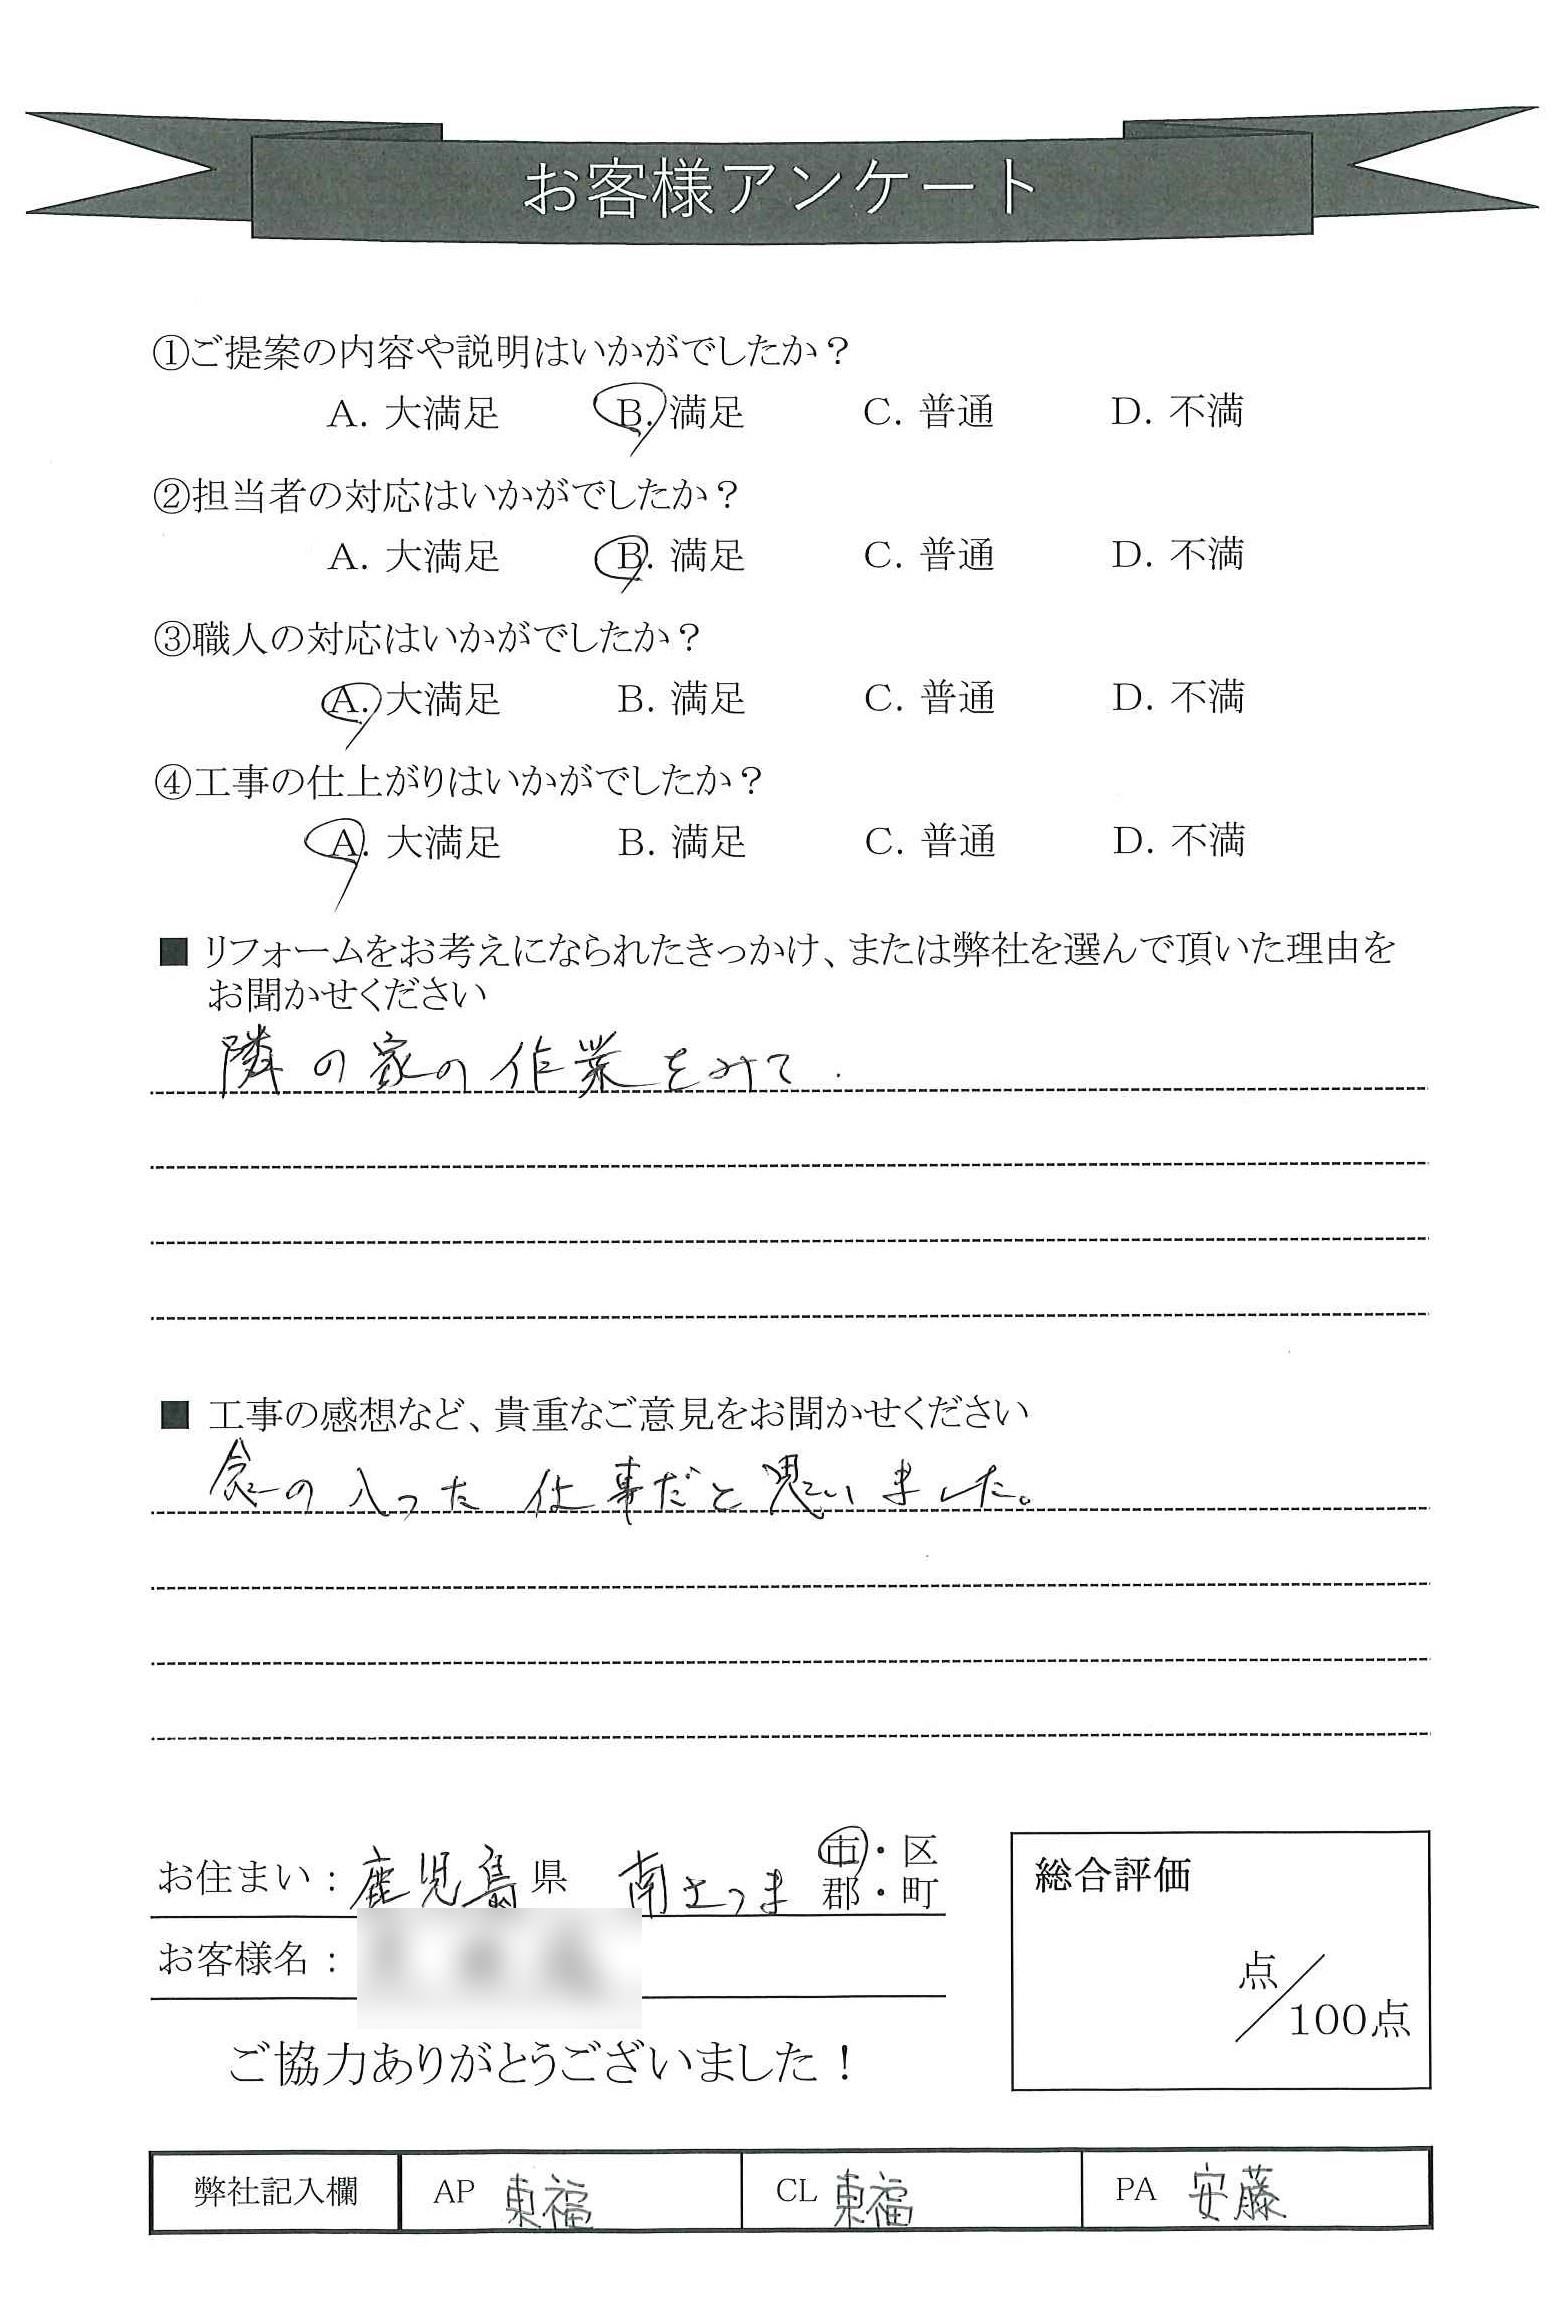 お客様アンケート
①ご提案の内容や説明はいかがでしたか？
A. 大満足 B. 満足 C. 普通 D. 不満
②担当者の対応はいかがでしたか？
A. 大満足 B. 満足 C. 普通 D. 不満
③職人の対応はいかがでしたか？
A. 大満足 B. 満足 C. 普通 D. 不満
④工事の仕上がりはいかがでしたか？
A. 大満足 B. 満足 C. 普通 D. 不満
■ リフォームをお考えになられたきっかけ、または弊社を選んで頂いた理由を
お聞かせください
隣の家の作業をみて.
■ 工事の感想など、貴重なご意見をお聞かせください
念の入った仕事だと思いました。
お住まい：鹿児島県 南さつま 市・区
郡・町
お客様名：
ご協力ありがとうございました！
総合評価
点／100点
弊社記入欄 AP 東福 CL 東福 PA 安藤